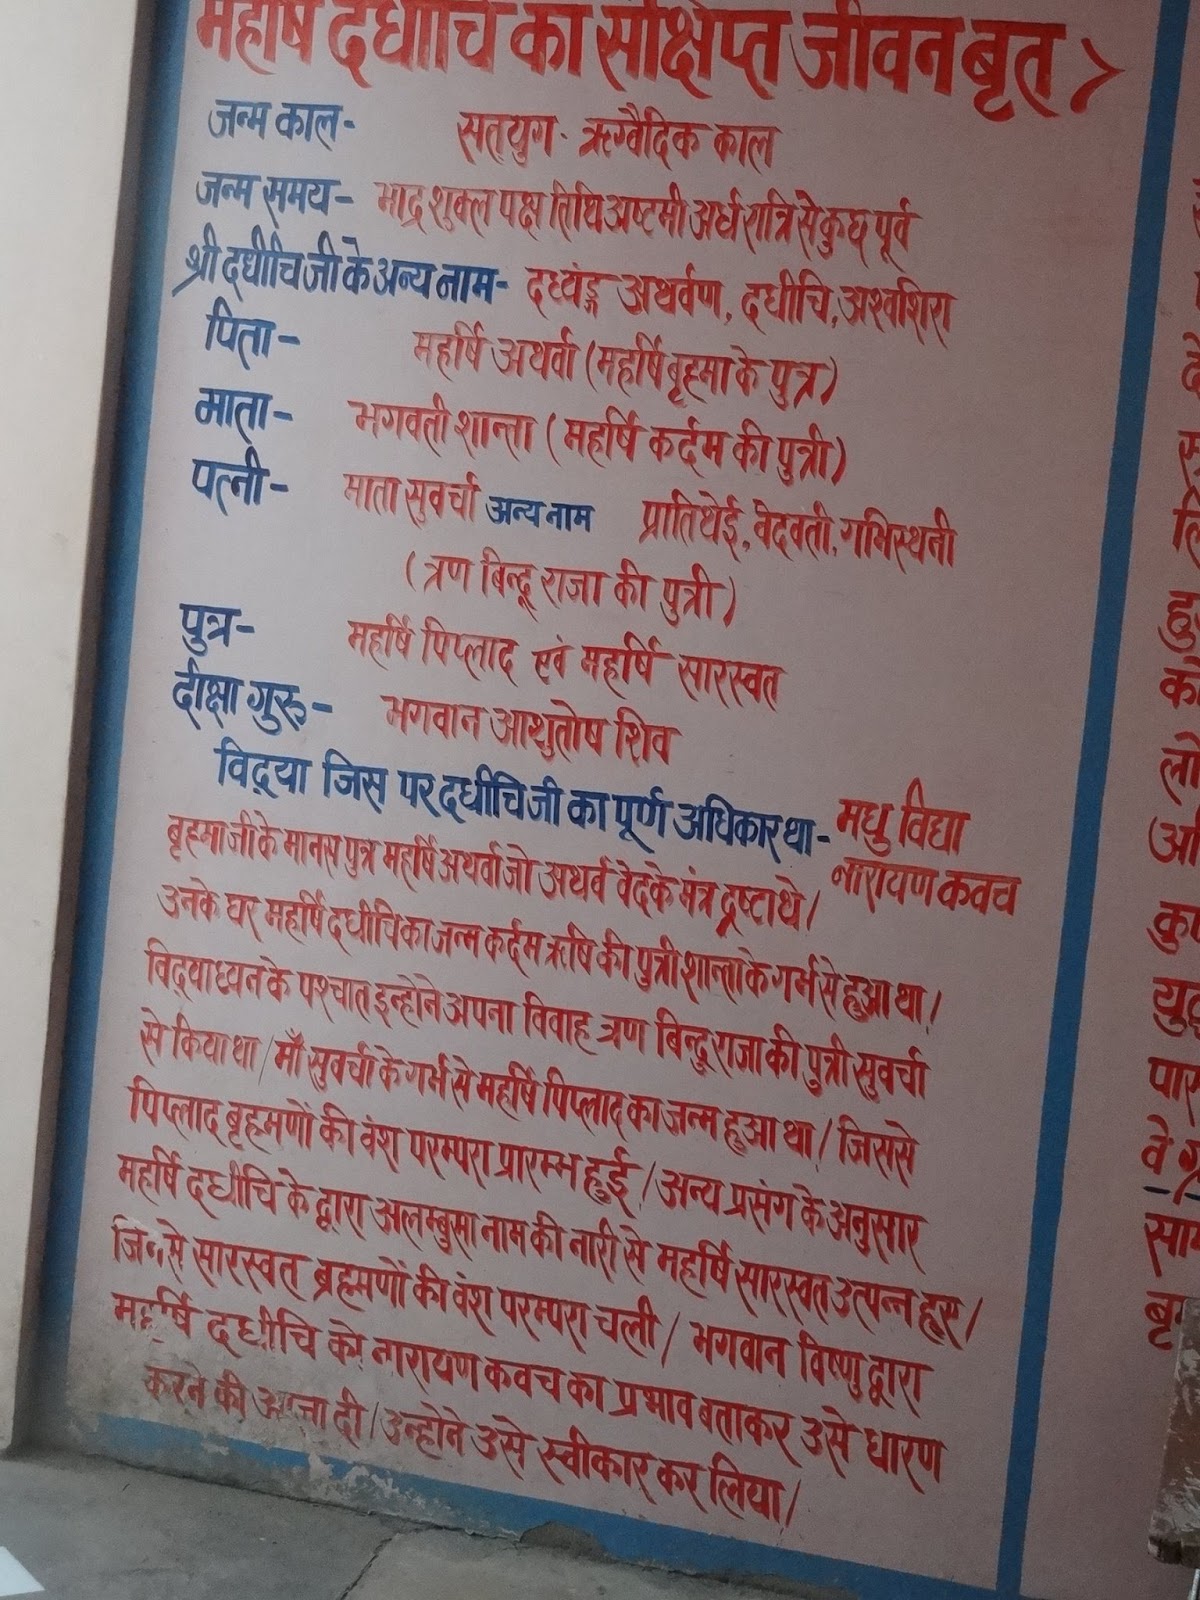 महर्षि दधीचि का संक्षिप्त जीवन बृत
जन्म काल- सतयुग - ऋग्वैदिक काल
जन्म समय- भाद्र शुक्ल पक्ष तिथि अष्टमी अर्ध रात्रि से कुछ पूर्व
श्री दधीचि जी के अन्य नाम- दध्यंङ्ग अथर्वण, दधीचि, अश्वशिरा
पिता- महर्षि अथर्वा (महर्षि बृह्मा के पुत्र)
माता- भगवती शान्ता (महर्षि कर्दम की पुत्री)
पत्नी- माता सुवर्चा अन्य नाम प्रातिथेई, वेदवती, गभिस्थनी
(त्रण बिन्दू राजा की पुत्री)
पुत्र- महर्षि पिप्लाद एवं महर्षि सारस्वत
दीक्षा गुरु- भगवान आशुतोष शिव
विद्या जिस पर दधीचि जी का पूर्ण अधिकार था- मधु विद्या
नारायण कवच
बृह्मा जी के मानस पुत्र महर्षि अथर्वा जो अथर्व वेद के मंत्र दृष्टा थे/
उनके घर महर्षि दधीचि का जन्म कर्दम ऋषि की पुत्री शान्ता के गर्भ से हुआ था/
विद्याध्यन के पश्चात इन्होने अपना विवाह त्रण बिन्दु राजा की पुत्री सुवर्चा
से किया था/ माँ सुवर्चा के गर्भ से महर्षि पिप्लाद का जन्म हुआ था/ जिससे
पिप्लाद बृह्मणों की वंश परम्परा प्रारम्भ हुई/ अन्य प्रसंग के अनुसार
महर्षि दधीचि के द्वारा अलम्बुसा नाम की नारी से महर्षि सारस्वत उत्पन्न हुए/
जिनसे सारस्वत ब्रह्मणों की वंश परम्परा चली/ भगवान विष्णु द्वारा
महर्षि दधीचि को नारायण कवच का प्रभाव बताकर उसे धारण
करने की आज्ञा दी/ उन्होने उसे स्वीकार कर लिया/